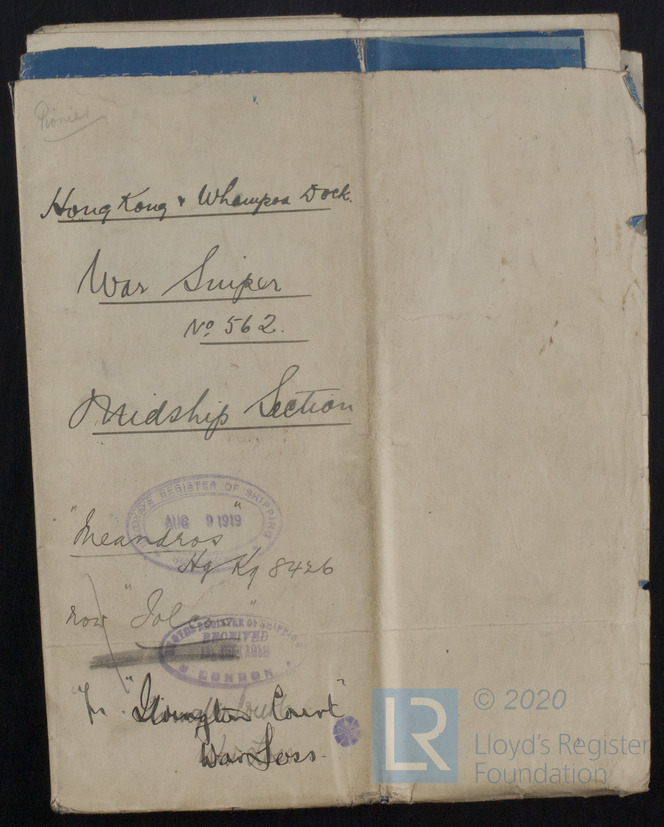 Pionier
Hong Kong & Whampoa Dock.
War Sniper
No 562.
Midship Section
LLOYD'S REGISTER OF SHIPPING
AUG 9 1919
"Meandros"
Hg Kg 8426
now "Jol
LLOYD'S REGISTER OF SHIPPING
RECEIVED
LONDON
"Ilvington Court"
War Loss.
LR
© 2020
Lloyd's Register
Foundation